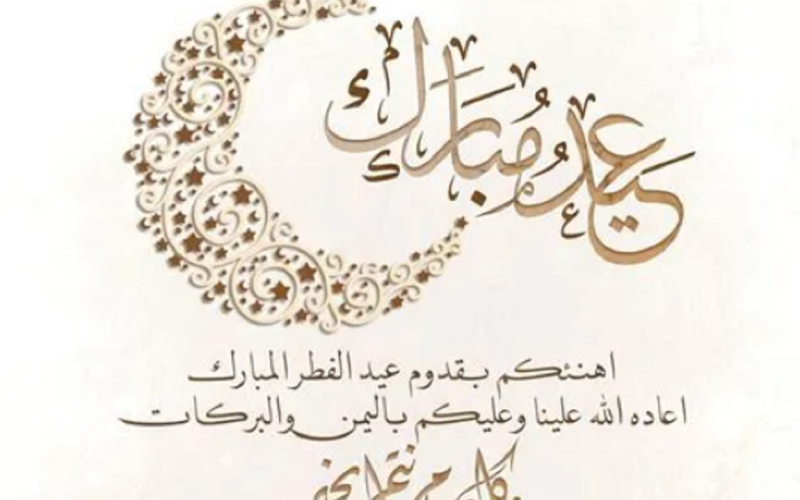 عيد مبارك
اهنئكم بقدوم عيد الفطر المبارك
اعاده الله علينا وعليكم باليمن والبركات